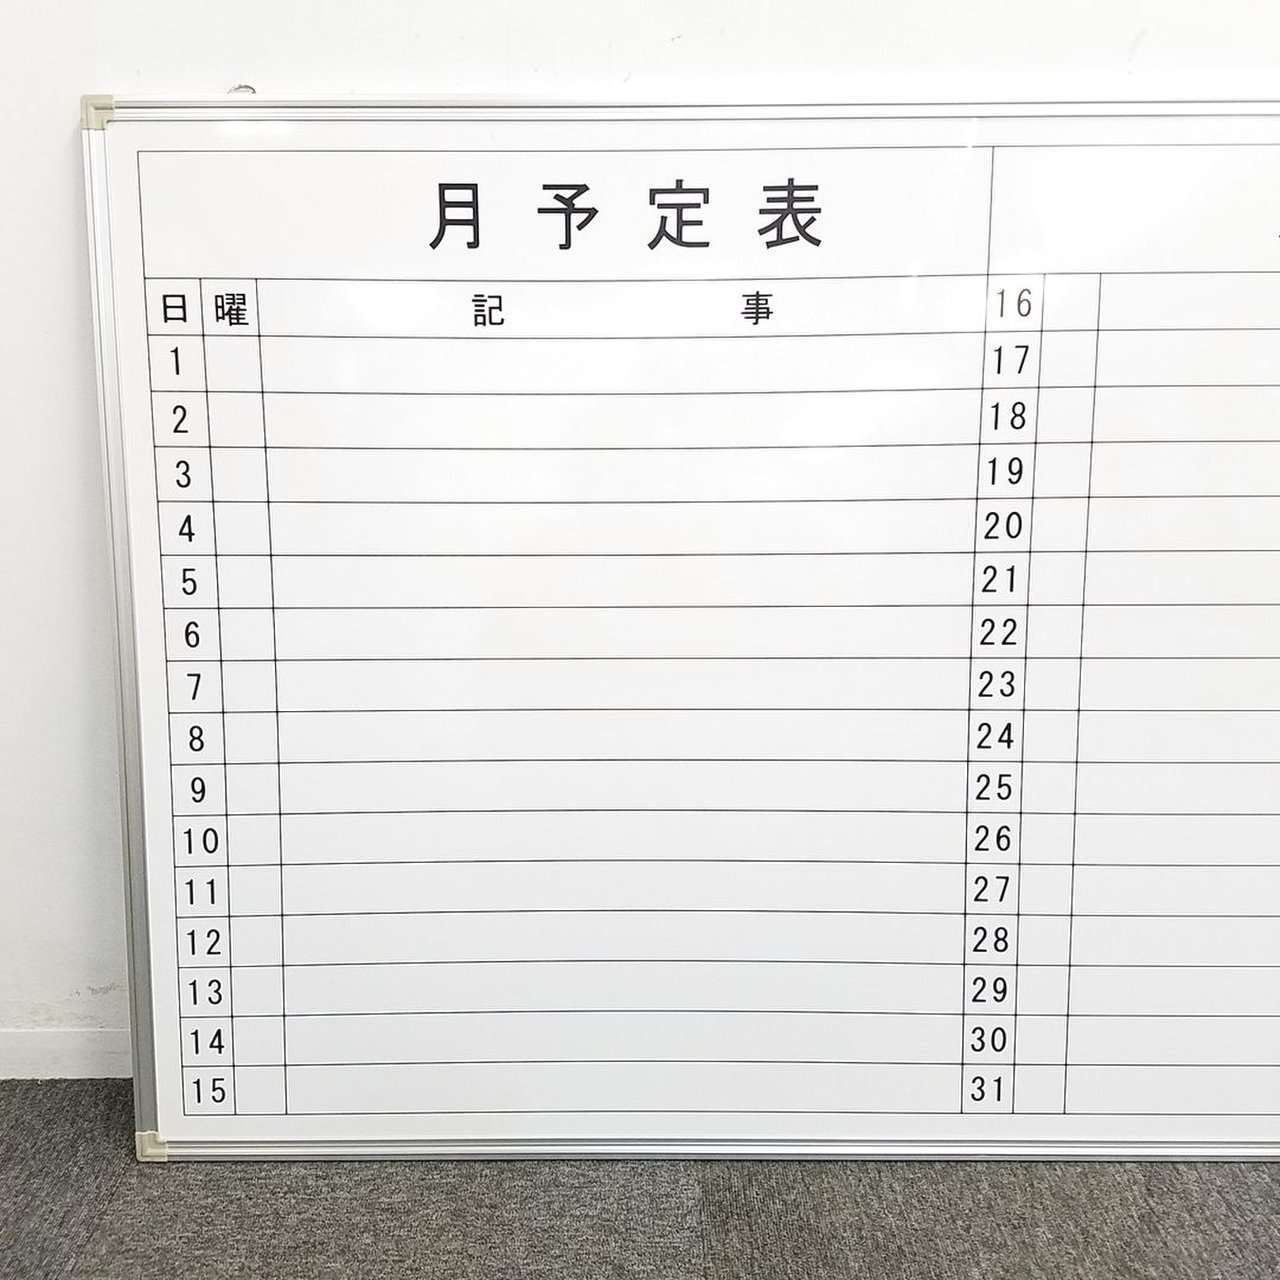 月予定表
日 曜 記事
1
2
3
4
5
6
7
8
9
10
11
12
13
14
15
16
17
18
19
20
21
22
23
24
25
26
27
28
29
30
31